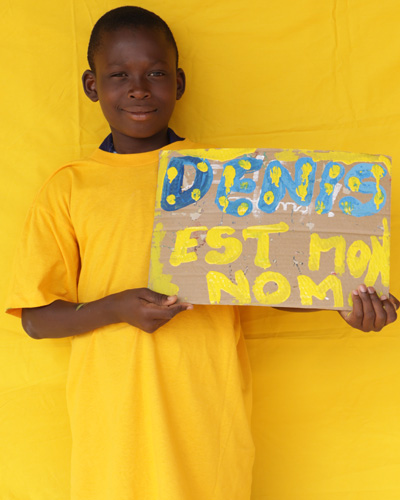 DENIS
EST MON
NOM